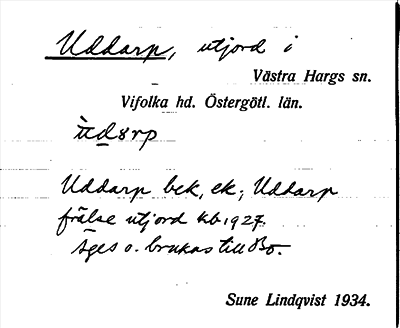 Uddarp, utjord i
Västra Hargs sn.
Vifolka hd. Östergötl. län.
ùd8rp
Uddarp bek, ek; Uddarp
frälse utjord kb 1927.
Äges o. brukas till Bo.
Sune Lindqvist 1934.